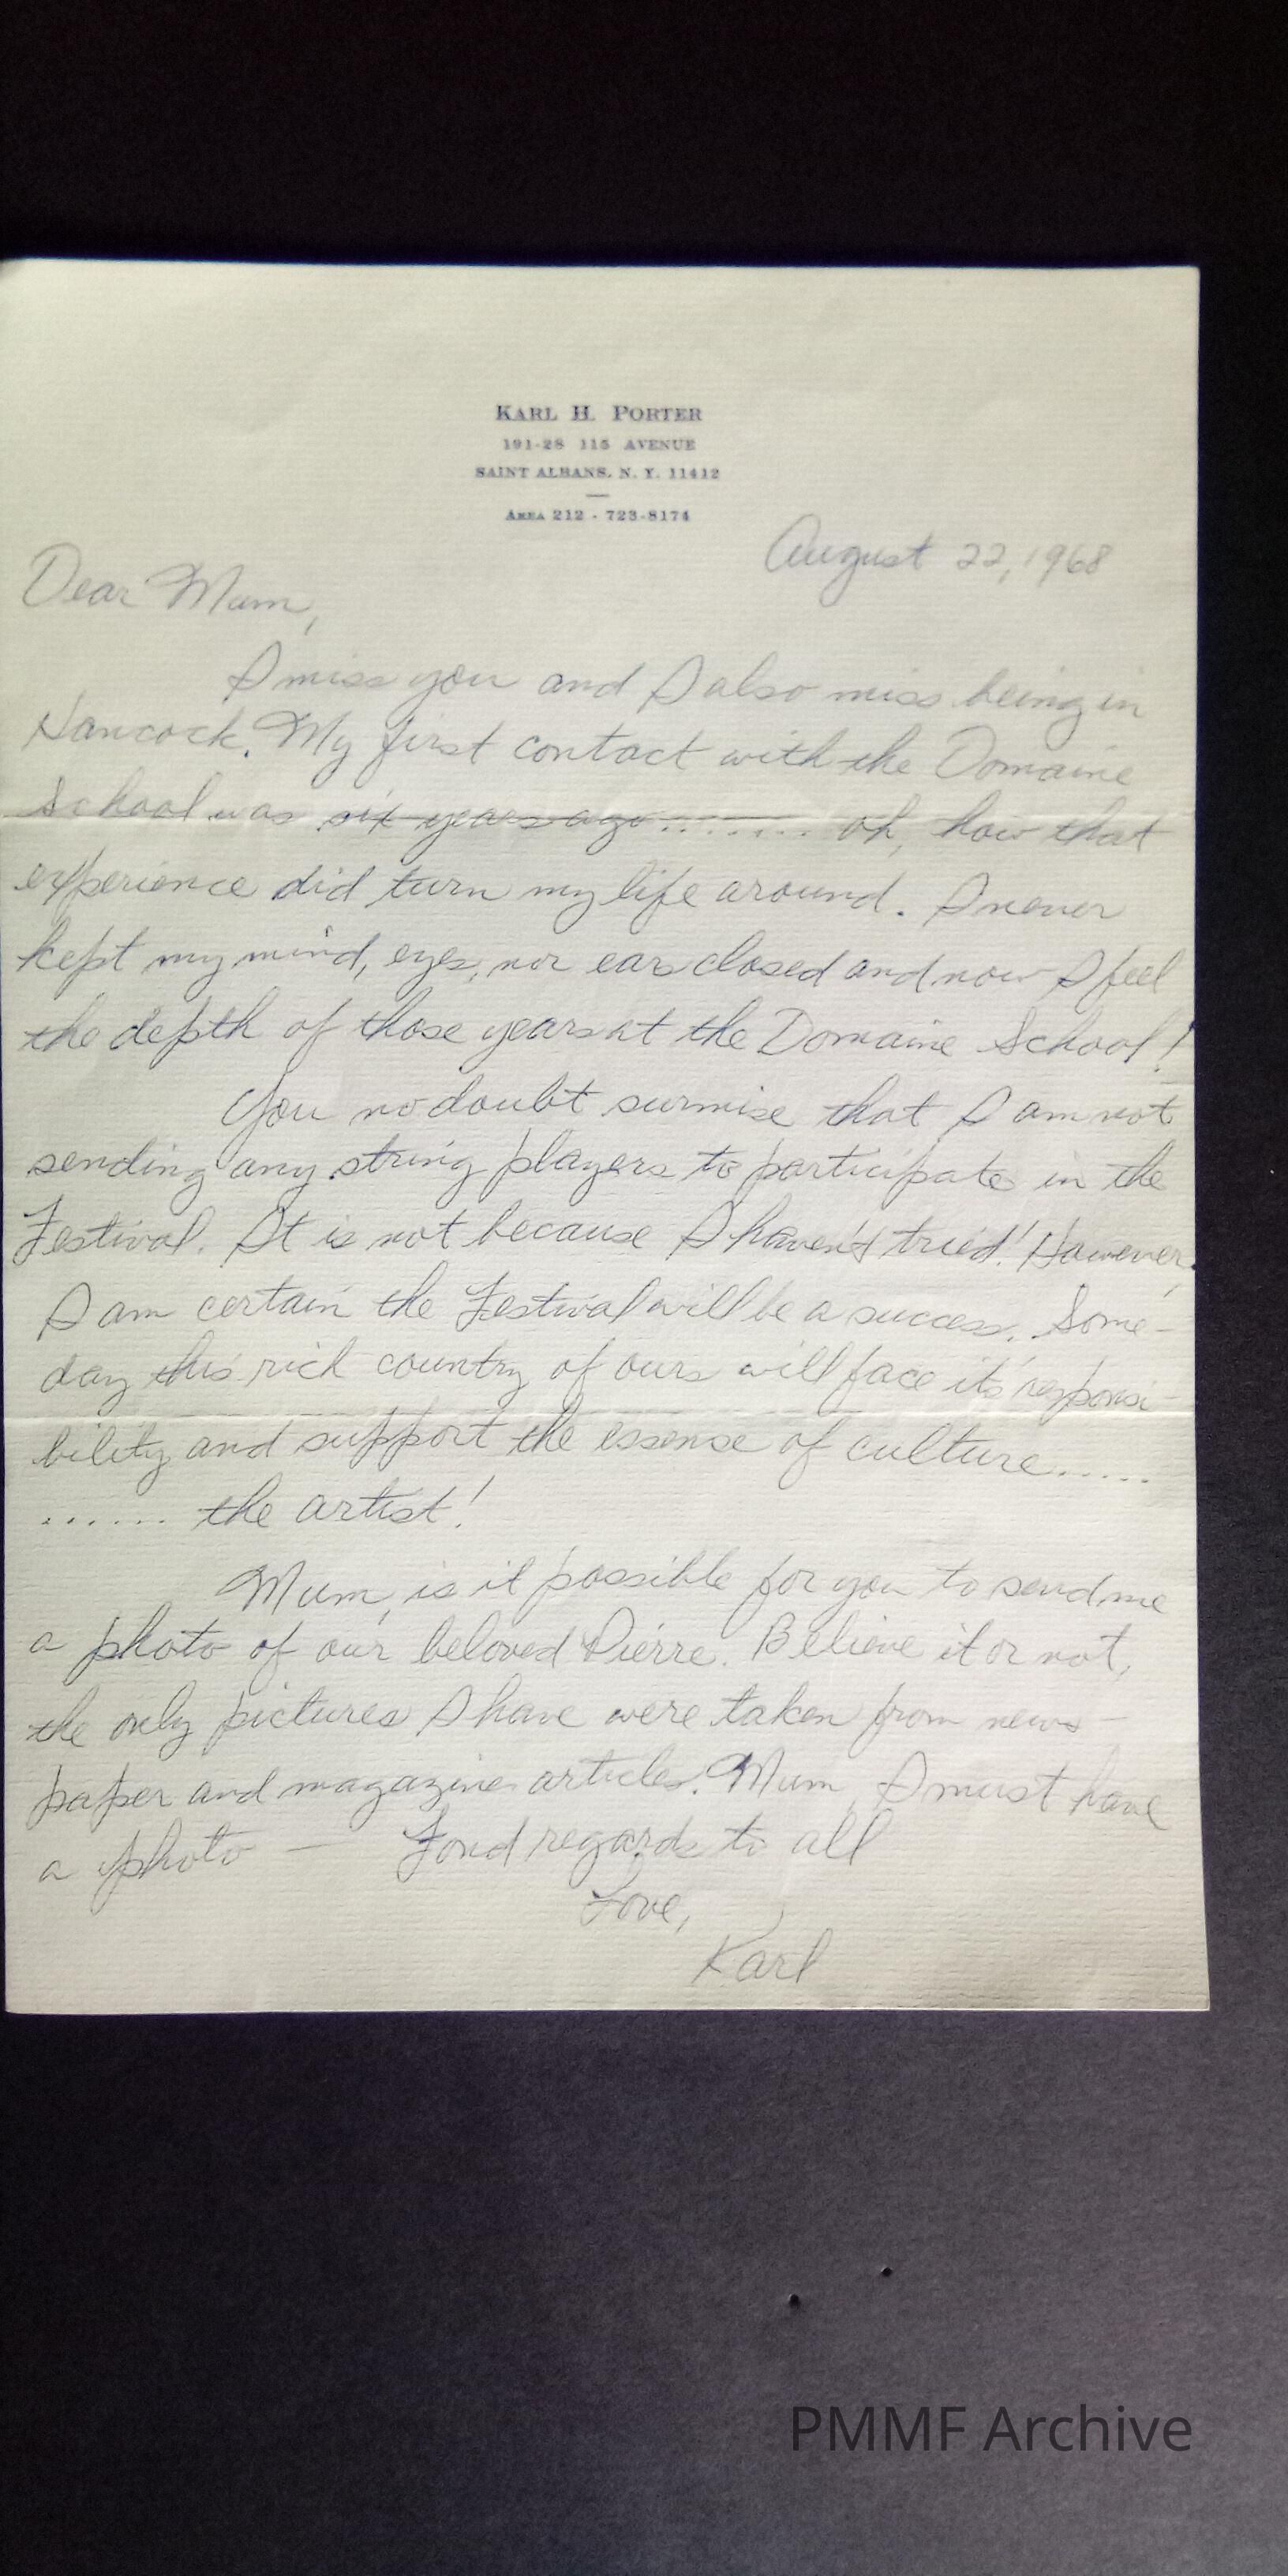 KARL H. PORTER
191-28 115 AVENUE
SAINT ALBANS, N. Y. 11412
AREA 212 - 723-8174
August 22, 1968
Dear Mum,
I miss you and I also miss being in
Hancock. My first contact with the Domaine
School was six years ago......... oh, how that
experience did turn my life around. I never
kept my mind, eyes, nor ears closed and now I feel
the depth of those years at the Domaine School!
You no doubt surmise that I am not
sending any string players to participate in the
Festival. It is not because I haven't tried! However,
I am certain the Festival will be a success. Some-
day this rich country of ours will face its' responsi-
bility and support the essense of culture.....
...... the artist!
Mum, is it possible for you to send me
a photo of our beloved Pierre. Believe it or not,
the only pictures I have were taken from news-
paper and magazine articles. Mum, I must have
a photo — Fond regards to all
Love,
Karl
PMMF Archive